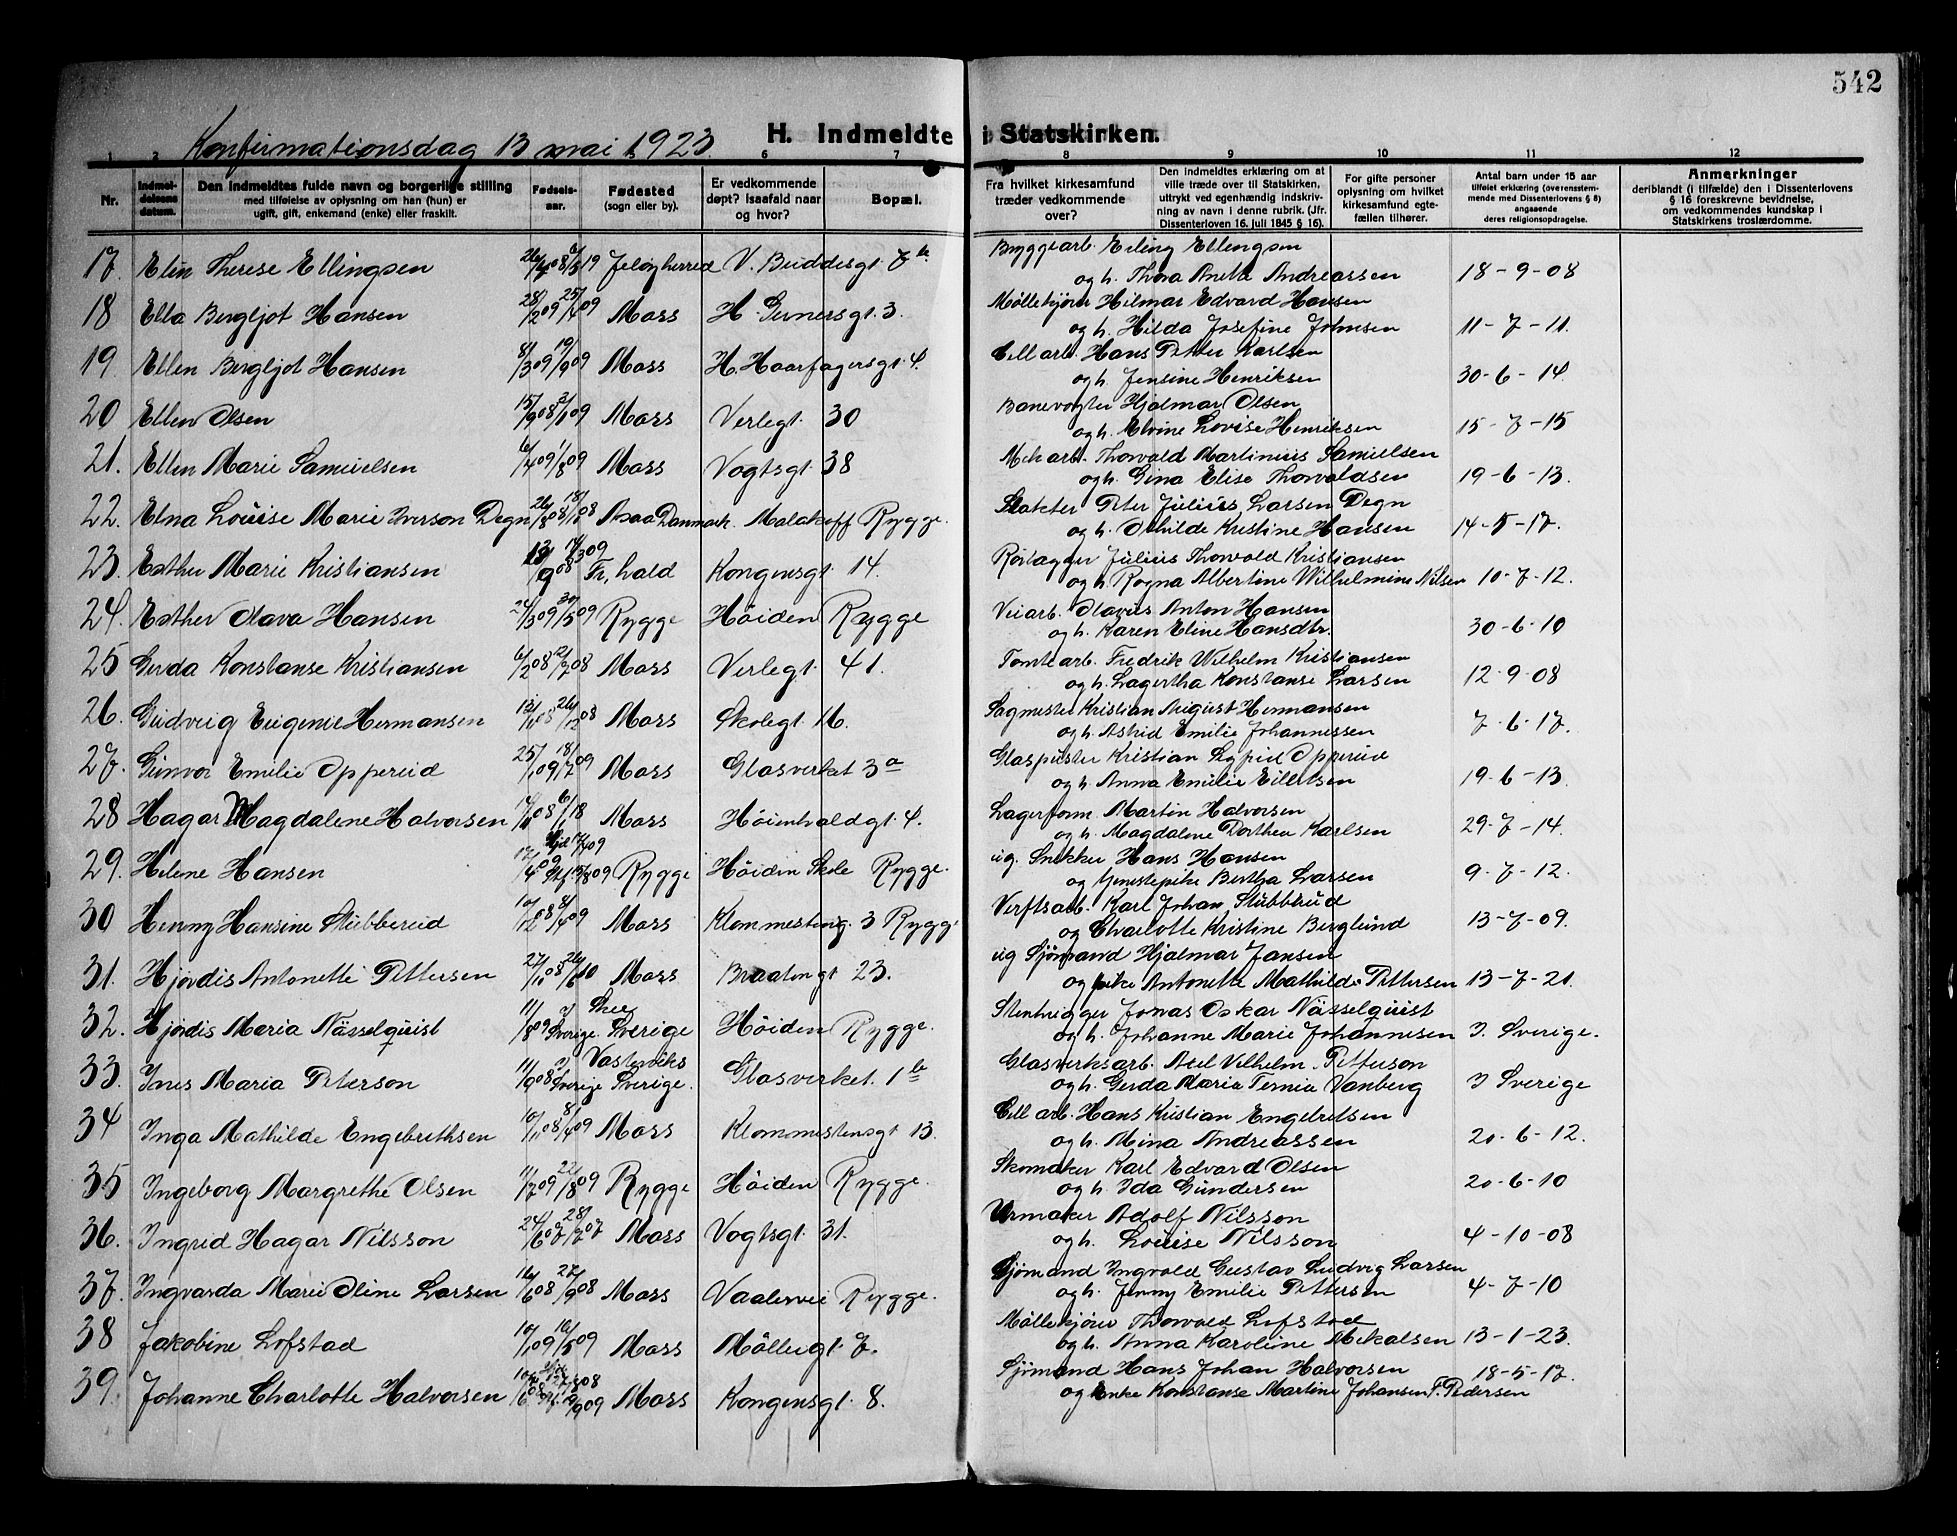 542
Konfirmationsdag 13 mai 1923.
H. Indmeldte i Statskirken.
1 2 6 7 8 9 10 11 12
Nr.
Indmeldelsens datum.
Den indmeldtes fulde navn og borgerlige stilling
med tilføielse av oplysning om han (hun) er
ugift, gift, enkemand (enke) eller fraskilt.
Fødselsaar.
Fødested
(sogn eller by).
Er vedkommende
døpt? Isaafald naar
og hvor?
Bopæl.
Fra hvilket kirkesamfund
træder vedkommende
over?
Den indmeldtes erklæring om at
ville træde over til Statskirken,
uttrykt ved egenhændig indskrivning
av navn i denne rubrik. (Jfr.
Dissenterloven 16. juli 1845 § 16).
For gifte personer
oplysning om hvilket
kirkesamfund egtefællen
tilhører.
Antal barn under 15 aar
tilføiet erklæring (overensstemmende
med Dissenterlovens § 8)
angaaende
deres religionsopdragelse.
Anmerkninger
deriblandt (i tilfælde) den i Dissenterlovens
§ 16 foreskrevne bevidnelse,
om vedkommendes kundskap i
Statskirkens troslærdomme.
17. Elin Therese Ellingsen 26/4 08 Jeløy herred V. Buddesgt. 7b Bryggearb. Erling Ellingsen
og h. Thora Anette Andreassen 18-9-08
18 Ella Bergljot Hansen 28/2 09 25/4 09 Moss H. Gernersgt. 3. Møllekjører Hilmar Edvard Hansen
og h. Hilda Josefine Johnsen 11-7-11.
19. Ellen Bergljot Hansen 8/3 09 19/9 09 Moss H. Haarfagersgt. 4. Cell arb. Hans Petter Karlsen
og h. Jensine Henriksen 30-6-14.
20 Ellen Olsen 15/9 08 Moss Verlegt. 30 Banevogter Hjalmar Olsen
og h. Elvine Lovise Henriksen 15-7-15
21. Ellen Marie Samuelsen 6/4 09 1/8 09 Moss Vogtsgt. 38 Mek arb. Thorvald Martinius Samuelsen
og h. Gina Elise Thorvaldsen 19-6-13.
22. Elna Louise Marie Iverson Degn Asaa Danmark. Malakoff Rygge. Slakter Peter Julius Larsen Degn
og h. Othilde Kristine Hansen 14-5-17.
23. Esther Marie Kristiansen 14/3 09 Fr. hald Kongensgt. 14. Rørlægger Julius Thorvald Kristiansen
og h. Ragna Albertine Wilhelmine Nilsen 10-7-12.
24. Esther Olava Hansen 24/3 09 30/5 09 Rygge Høiden Rygge Veiarb. Olavus Anton Hansen
og h. Karen Eline Hansdtr. 30-6-10
25 Gerda Konstanse Kristiansen 6/2 08 2/7 08 Moss Verlegt. 41. Tomtearb. Fredrik Wilhelm Kristiansen
og h. Lagertha Konstanse Larsen 12-9-08
26. Gudveig Eugenie Hermansen 13/11 08 26/12 08 Moss Skolegt. 16. Sagmester Kristian August Hermansen
og h. Astrid Emilie Johannessen 7-6-17.
27. Gunvor Emilie Oppereid 25/1 09 18/7 09 Moss Glasverket 3a Glaspuster Kristian Oppereid
og h. Anna Emilie Eilertsen 19-6-13.
28 Hagar Magdalene Halvorsen Moss Høienhaldgt. 4. Lagerform. Martin Halvorsen
og h. Magdalene Dorthea Karlsen 29-7-14.
29. Helene Hansen 17/4 09 Rygge Høiden Skole Rygge. ug. Snekker Hans Hansen
og tjenestepike Bertha Larsen 9-7-12.
30 Henny Hansine Stubberud 10/12 08 8/4 09 Moss Klommesteng. 3 Rygge Verftsarb. Karl Johan Stubberud
og Charlotte Kristine Berglund 13-7-09.
31. Hjørdis Antonette Pettersen 27/10 08 26/6 10 Moss Braatengt 23. ug Sjømand Hjalmar Jansen
og pike Antonette Mathilde Pettersen 13-7-21.
32. Hjørdis Maria Nässelquist 11/8 09 i Sverige Skee Sverige Høiden Rygge. Stenhugger Jonas Oskar Nässelquist
og h. Johanne Marie Johannesen I Sverige.
33. Ines Maria Peterson 11/9 08 i Sverige Vasterviks Sverige. Glasverket. 1b Glasverksarb. Axel Vilhelm Petterson
og h. Gerda Maria Fernia Vanberg I Sverige
34 Inga Mathilde Engebrethsen 10/11 08 8/4 09 Moss Klommestensgt 13. Cell arb. Hans Kristian Engebretsen
og h. Mina Andreassen 20-6-12.
35 Ingeborg Margrethe Olsen 11/7 09 22/8 09 Rygge Høiden Rygge. Skomaker Karl Edvard Olsen
og h. Ida Gundersen 20-6-10
36. Ingrid Hagar Nilsson 24/6 07 28/7 07 Moss Vogtsgt. 31. Urmaker Adolf Nilsson
og h. Louise Nilsson 4-10-08
37. Ingvarda Marie Oline Larsen 16/6 08 27/9 08 Moss Vaalervei Rygge. Sjømand Ingvald Gustav Ludvig Larsen
og h. Jenny Emilie Pettersen 4-7-10
38 Jakobine Lofstad 10/1 09 16/5 09 Moss Møllergt. 7. Møllekjører Thorvald Lofstad
og h. Anna Karoline Mekalsen 13-1-23.
39. Johanne Charlotte Halvorsen Moss Kongensgt. 8. Sjømand Hans Johan Halvorsen 18-5-17.
og enke Konstanse Martine Johansen F. Pedersen